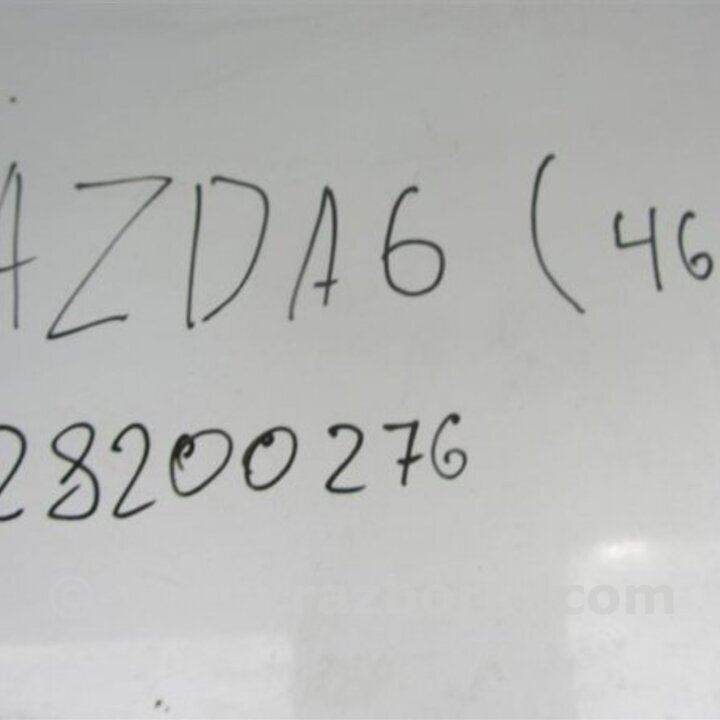 AZDA6 (46
28200276
© razbor .com